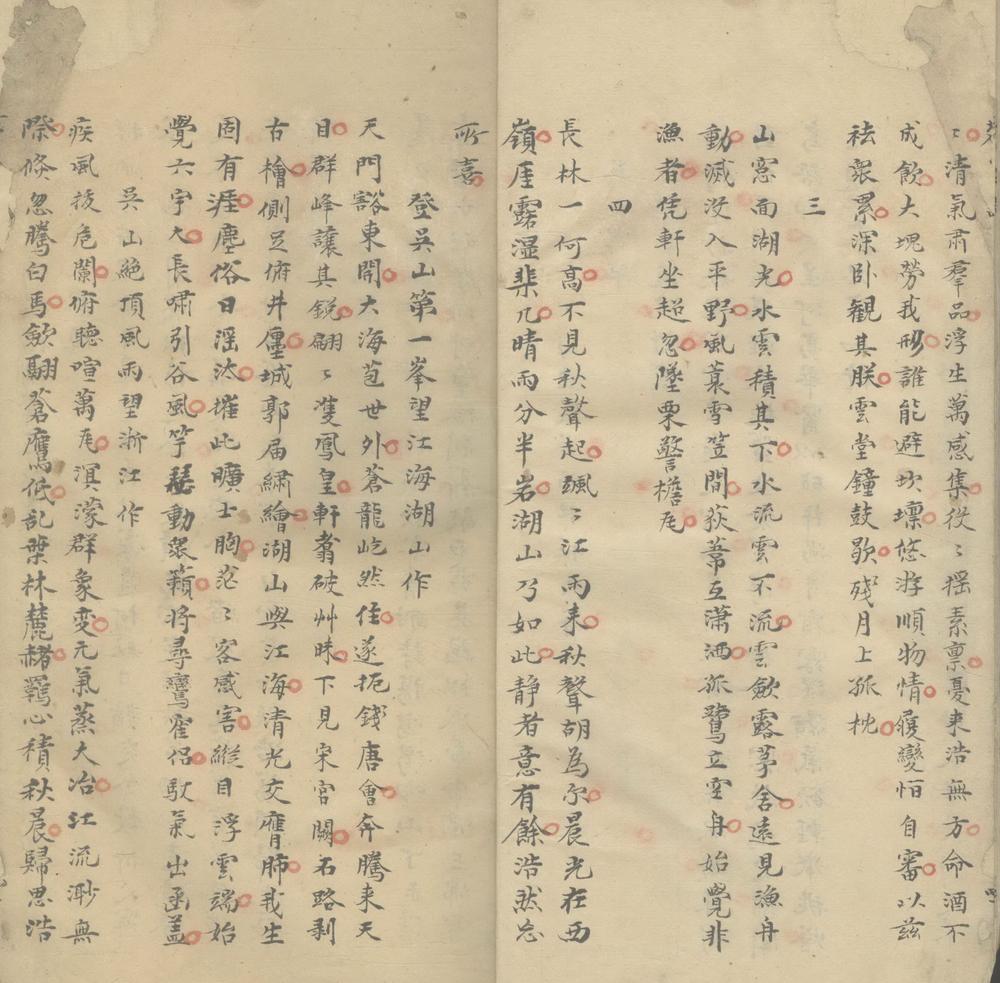 〻清氣肅羣品浮生萬感集役〻摇素禀憂来浩無方命酒不
成飲大塊勞我形誰能避坎壈悠游順物情屢變怕自審以兹
祛衆累深卧觀其朕雲堂鐘鼓歇殘月上孤枕
三
山窓面湖光水雲積其下水流雲不流雲歛露茅舍遠見漁舟
動滅没入平野風蓑雪笠間荻葦互潇洒孤鷺立空舟始覺非
漁者凭軒坐超忽墜栗驚檐瓦
四
長林一何高不見秋聲起颯〻江雨来秋聲胡為尔晨光在西
嶺厓露湿棐几晴雨分半岩湖山乃如此静者意有餘浩然忘
所喜
登吴山第一峯望江海湖山作
天門豁東開大海苞世外蒼龍屹然住遂扼錢唐會奔騰来天
目群峰讓其鋭翩〻雙鳳皇軒翥破艸昧下見宋宫闕石路剥
古檜側足俯井廛城郭届繡繪湖山與江海清光交膺肺我生
固有涯塵俗日滛汰摧此曠士胸茫〻客感害縱目浮雲端始
覺六宇大長嘯引谷風竽瑟動衆籟將尋鸞隺侣馭氣出函盖
吴山絶頂風雨望浙江作
疾風拔危闌俯聽喧萬瓦溟濛群象变元氣蒸大冶江流渺無
際倏忽騰白馬歘翩蒼鷹低乱葉林麓赭羇心積秋晨歸思浩